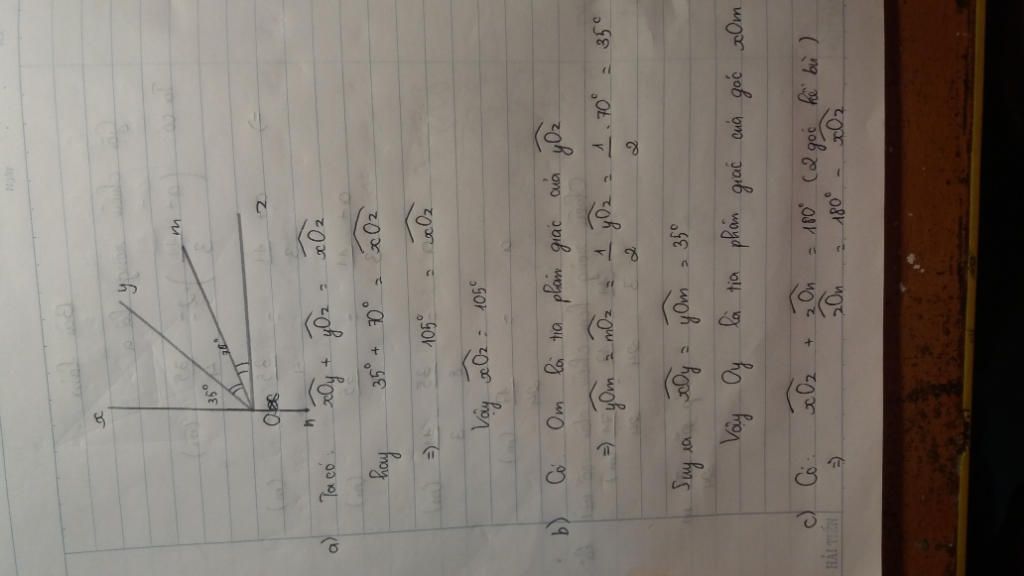 x
y
m
35°
70°
O
z
n
a) Ta có: xOy + yOz = xOz
hay 35° + 70° = xOz
=) 105° = xOz
Vậy xOz = 105°
b) Có Om là tia phân giác của yOz
=) yOm = mOz = 1/2 yOz = 1/2 . 70° = 35°
Suy ra xOy = yOm = 35°
Vậy Oy là tia phân giác của góc xOm
c) Có: xOz + zOn = 180° (2 góc kề bù)
=) zOn = 180° - xOz
HẢI TIẾN